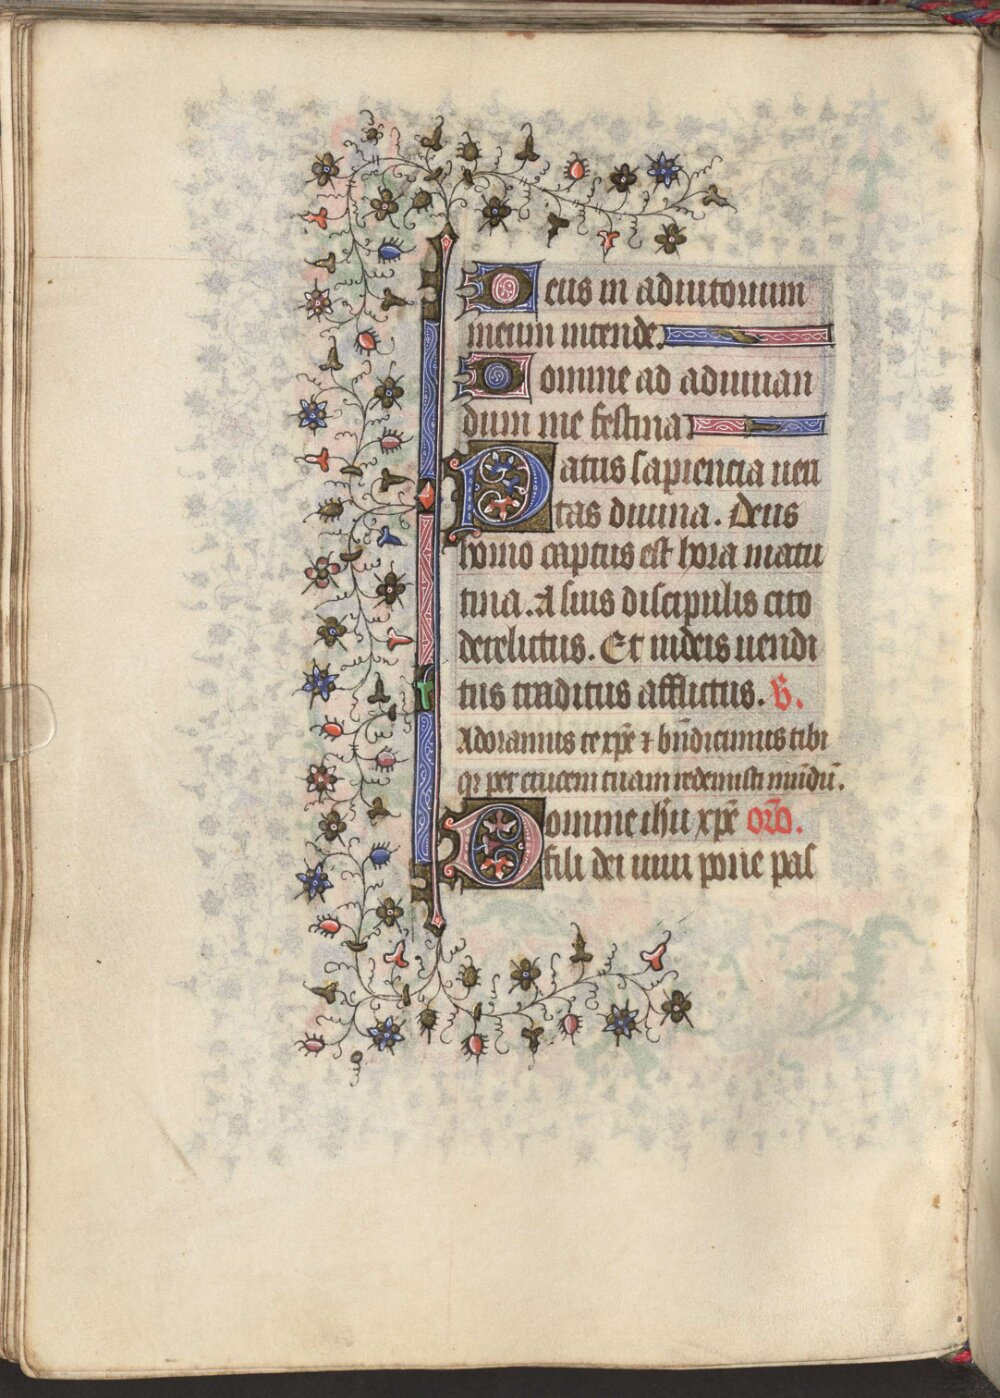 Deus in adiutorium
meum intende.
Domine ad adiuuan
dum me festina
Patris sapiencia ueri
tas diuina. Deus
homo captus est hora matu
tina. A suis discipulis cito
derelictus. Et iudeis uendi
tus traditus afflictus. V̄.
Adoramus te xp̄e ⁊ bn̄dicimus tibi
qr per crucem tuam redemisti mūdū.
Domine ihū xp̄e orō.
fili dei uiui pone pas